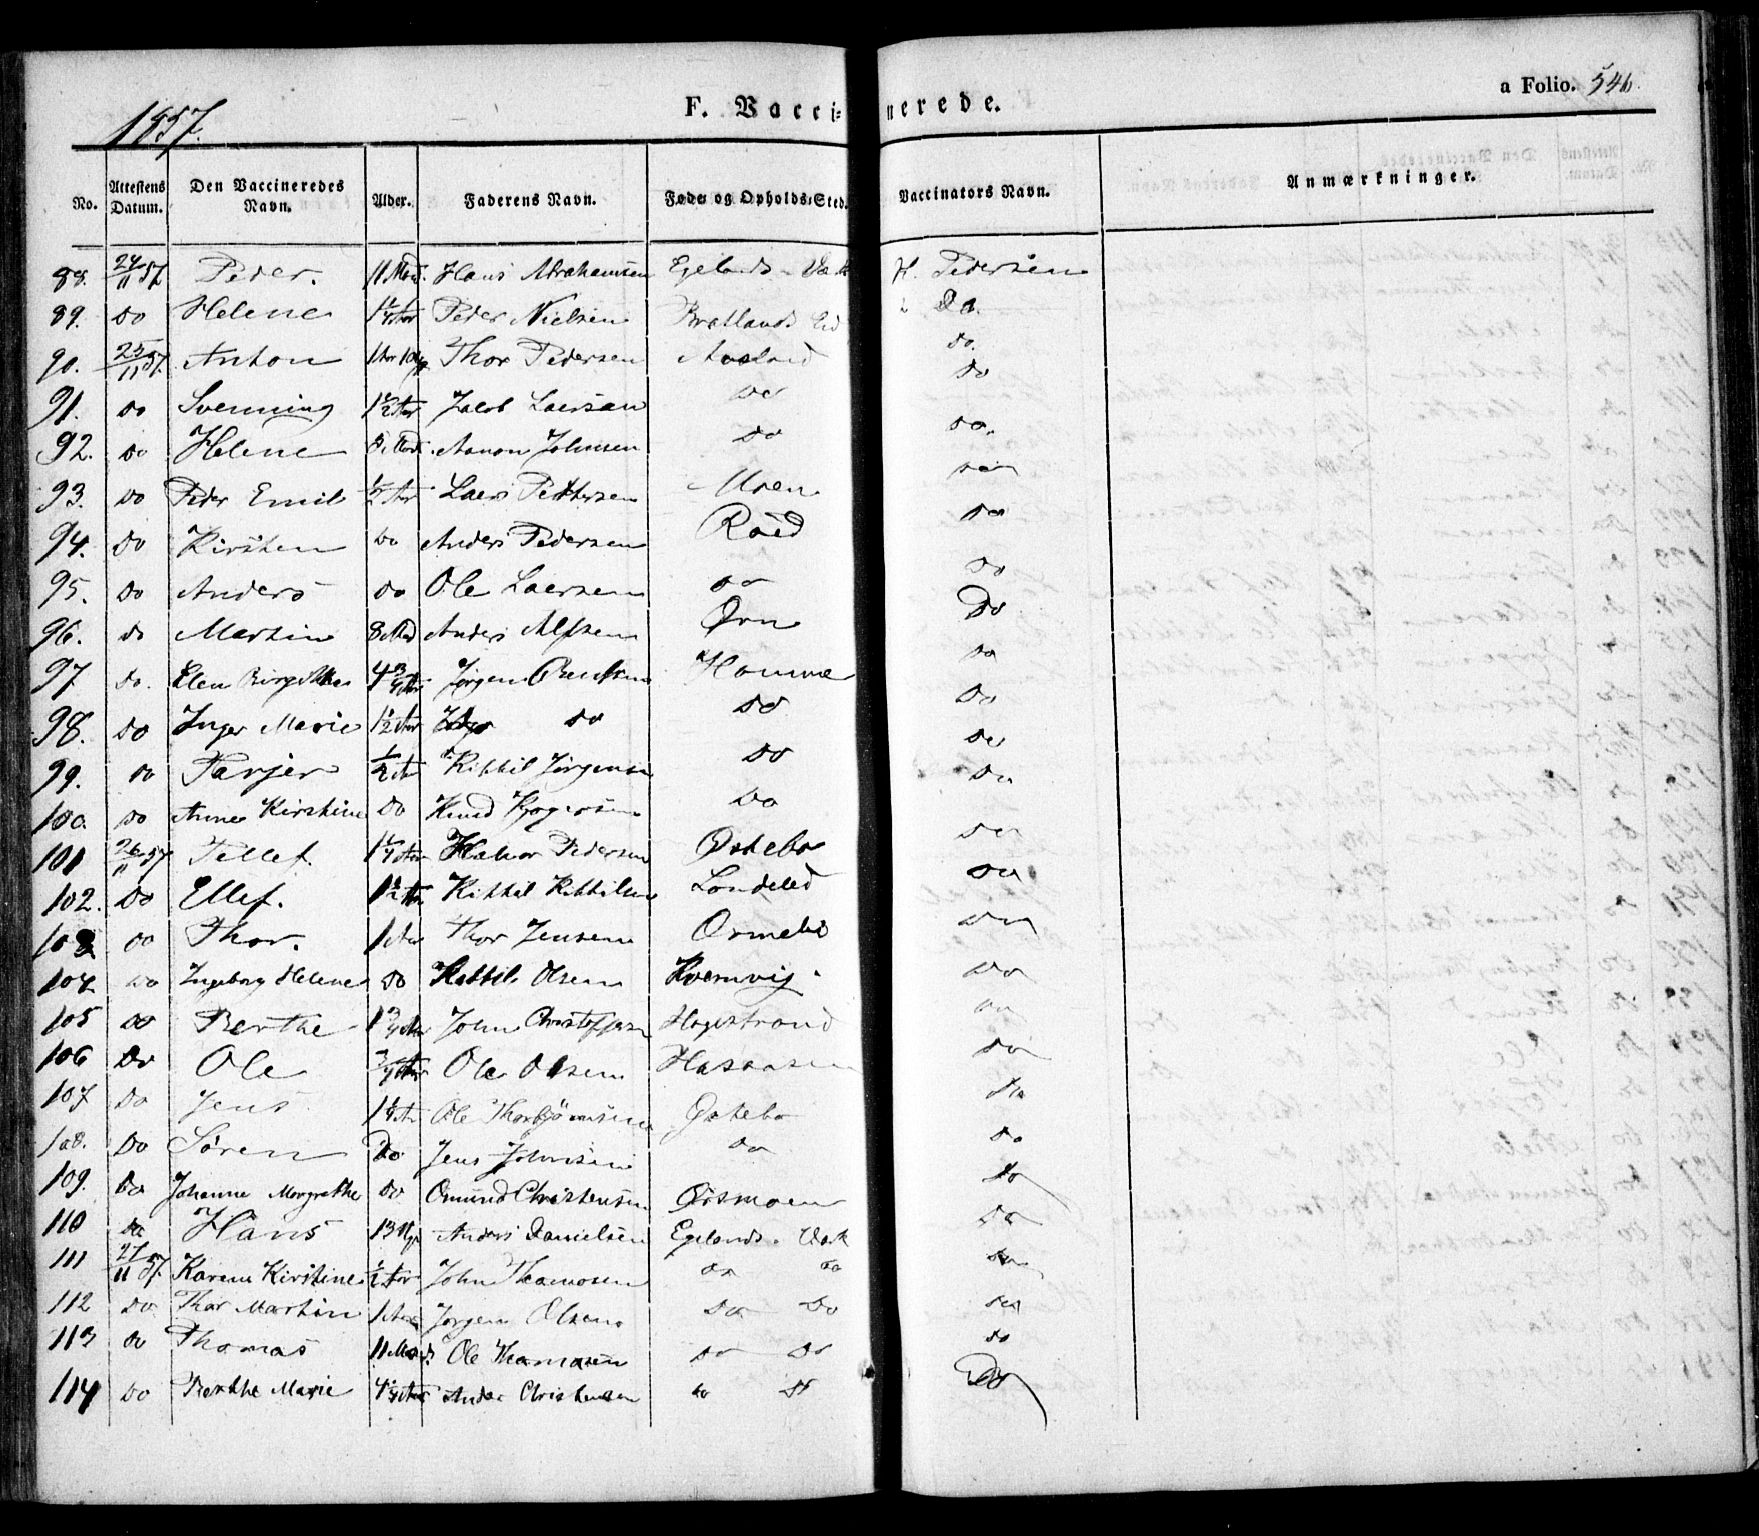 1857.
F. Vaccinerede.
a Folio. 546.
No. Attestens Datum. Den Vaccineredes Navn. Alder. Faderens Navn. Føde og Opholds-Sted. Vaccinators Navn. Anmærkninger.
88. 24/11 57 Peder. 11 Mnd. Hans Abrahamsen Egelands Værk H. Pedersen
89. Do Helene 1 1/4 Aar Peder Nielsen Bratlands Eid Do.
90. 25/11 57. Anton Thor Pedersen Aasland Do.
91. Do Svenning 1 1/2 Aar Jacob Laersen Do Do
92. Do Helene Aanon Johnsen Do Do.
93. Do Peder Emil 1/2 Aar Laers Pettersen Moen Do
94. Do Kirsten Do Anders Pedersen Røed Do
95. Do Anders Do Ole Laersen Do Do
96. Do Martin 8 Mnd Anders Alfsen Ørn Do
97 Do. Elen Birgitthe 4 3/4 Aar Jørgen Bentsen Homme Do
98. Do Inger Marie 1 1/2 Aar Do Do Do
99. Do Tarjer 1/2 Aar Kittil Jørgensen Do Do
100. Do Anne Kirstine Do Knud Do Do
101 26/11 57 Tellef. 1 1/4 Aar Halvor Pedersen Østebø Do
102. Do Ellef. 1 1/2 Aar Kittil Kittilsen Londeled Do
103 Do Thor. 1 Aar Thor Jensen Do
104 Do Ingeborg Helene Do Kittil Olsen Kvernvig Do
105 Do Berthe 1 3/4 Aar John Christoffersen Hagestrand Do
106 Do Ole 3/4 Aar Ole Olsen Hasaasen Do
107 Do Jens 1 1/4 Aar Ole Thorbjörnsen Østebø Do
108. Do Søren Do Jens Johnsen Do Do
109. Do Johanne Margrethe Do Omund Christensen Østmoen Do
110 Do Hans Anders Danielsen Egelands Værk Do
111 27/11 57. Karen Kirstine 1/2 Aar John Thomosen Do Do Do
112 Do Thor Martin 1 Aar Jørgen Olsen Do Do Do
113 Do Thomas 11 Mnd. Ole Thomasen Do Do Do
114 Do Berthe Marie Anders Christensen Do Do Do